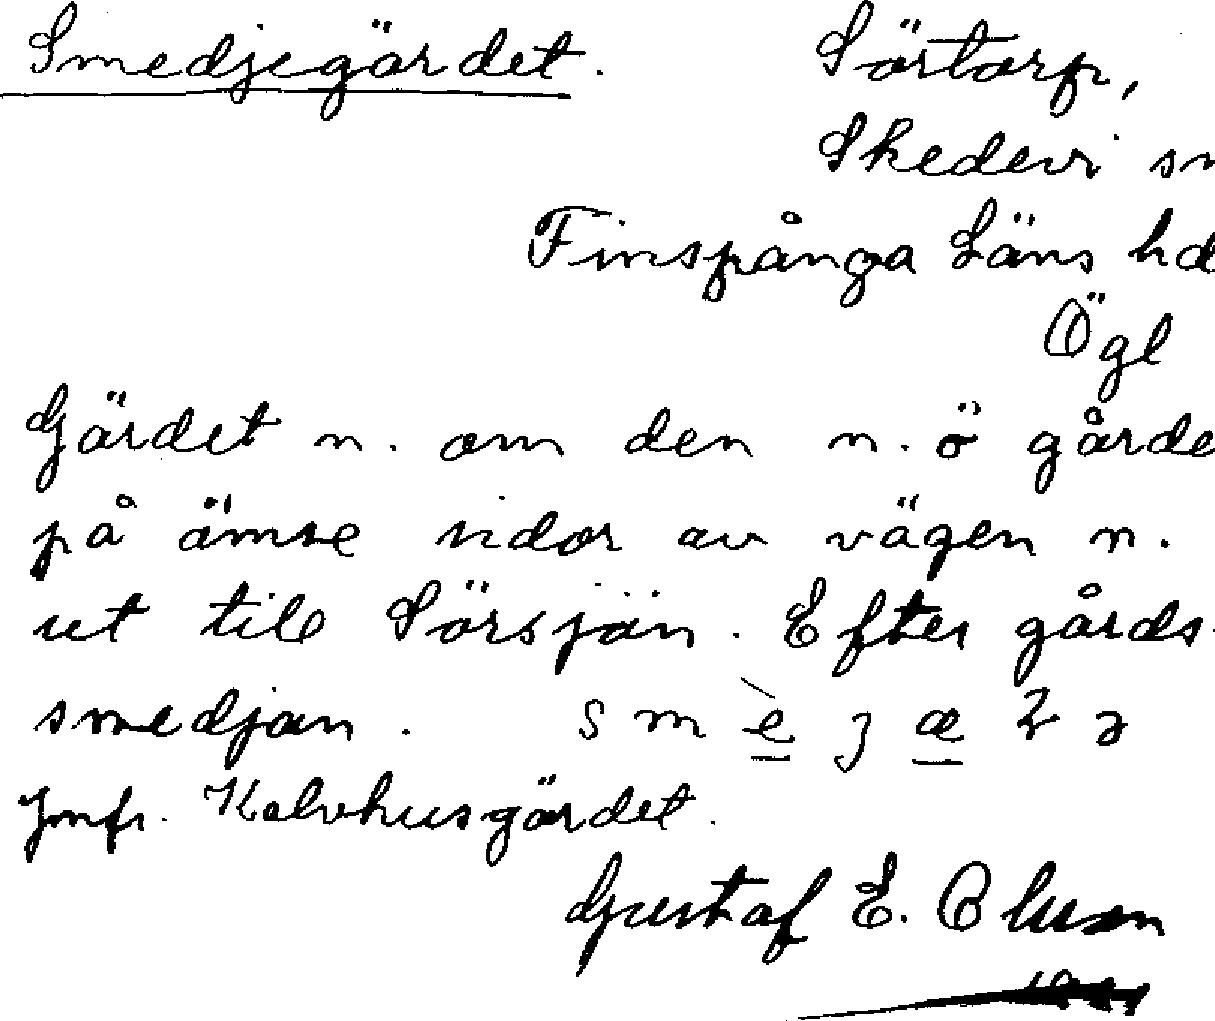 Smedjegärdet. Sörtorp,
Skedevi sn
Finspånga Läns hd
Ögl
Gärdet n. om den n. ö gårde
på ömse sidor av vägen n.
ut till Sörsjön. Efter gårds-
smedjan.
Jmfr. Kalvhusgärdet.
Gustaf E. Olsson